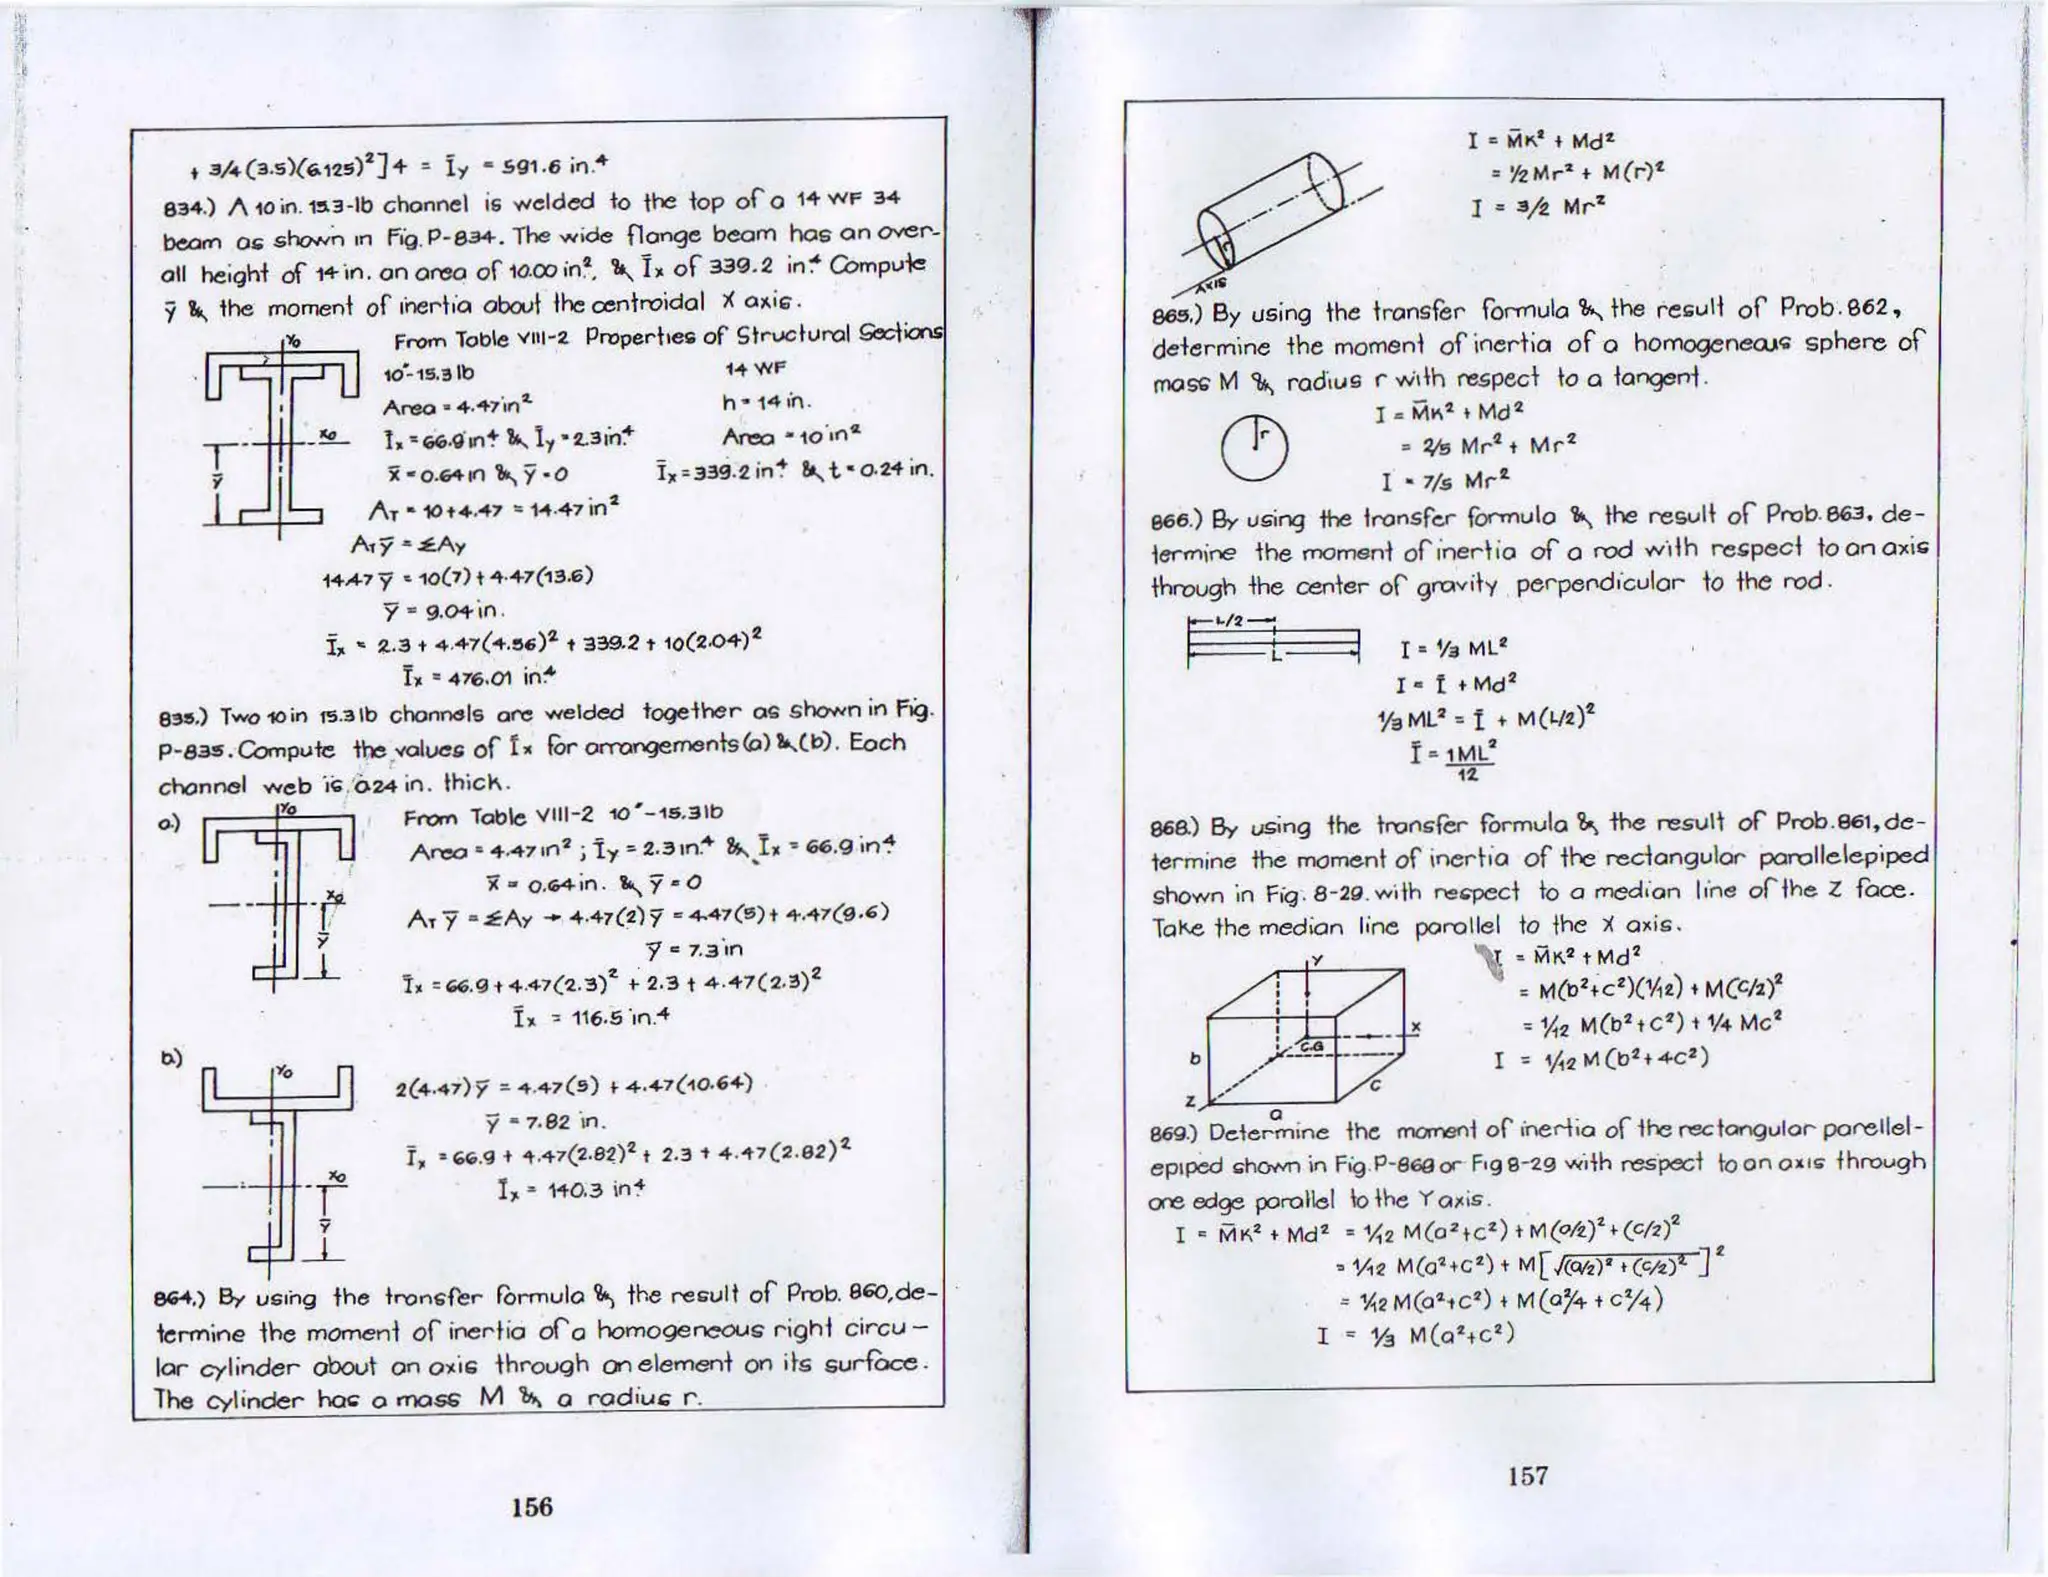 + 3/4 (3.5)(6.125)²] 4 = Īy = 591.6 in.⁴
834.) A 10 in. 15.3-lb channel is welded to the top of a 14 WF 34
beam as shown in Fig. P-834. The wide flange beam has an over-
all height of 14 in. an area of 10.00 in², & Īx of 339.2 in⁴ Compute
ȳ & the moment of inertia about the centroidal X axis.
From Table VIII-2 Properties of Structural Sections
Yo
10"-15.3 lb
14 WF
Area = 4.47 in²
h = 14 in.
Xo
Īx = 66.9 in⁴ & Īy = 2.3 in⁴
Area = 10 in²
ȳ
x̄ = 0.64 in & ȳ = 0
Īx = 339.2 in⁴ & t = 0.24 in.
AT = 10 + 4.47 = 14.47 in²
ATȳ = ΣAy
14.47 ȳ = 10(7) + 4.47(13.6)
ȳ = 9.04 in.
Īx = 2.3 + 4.47(4.56)² + 339.2 + 10(2.04)²
Īx = 476.01 in⁴
835.) Two 10 in 15.3 lb channels are welded together as shown in Fig.
P-835. Compute the values of Īx for arrangements (a) & (b). Each
channel web is 0.24 in. thick.
a.)
Yo
From Table VIII-2 10"-15.3 lb
Area = 4.47 in² ; Īy = 2.3 in⁴ & Īx = 66.9 in⁴
x̄ = 0.64 in. & ȳ = 0
Xo
AT ȳ = ΣAy → 4.47(2)ȳ = 4.47(5) + 4.47(9.6)
ȳ
ȳ = 7.3 in
Īx = 66.9 + 4.47(2.3)² + 2.3 + 4.47(2.3)²
Īx = 116.5 in.⁴
b.)
Yo
2(4.47)ȳ = 4.47(5) + 4.47(10.64)
ȳ = 7.82 in.
Īx = 66.9 + 4.47(2.82)² + 2.3 + 4.47(2.82)²
Xo
Īx = 140.3 in⁴
ȳ
864.) By using the transfer formula & the result of Prob. 860, de-
termine the moment of inertia of a homogeneous right circu-
lar cylinder about an axis through an element on its surface.
The cylinder has a mass M & a radius r.
156
I = M̄K² + Md²
= 1/2 Mr² + M(r)²
I = 3/2 Mr²
r
AXIS
865.) By using the transfer formula & the result of Prob. 862,
determine the moment of inertia of a homogeneous sphere of
mass M & radius r with respect to a tangent.
r
I = M̄K² + Md²
= 2/5 Mr² + Mr²
I = 7/5 Mr²
866.) By using the transfer formula & the result of Prob. 863, de-
termine the moment of inertia of a rod with respect to an axis
through the center of gravity perpendicular to the rod.
L/2
L
I = 1/3 ML²
I = Ī + Md²
1/3 ML² = Ī + M(L/2)²
Ī = 1ML²
12
868.) By using the transfer formula & the result of Prob. 861, de-
termine the moment of inertia of the rectangular parallelepiped
shown in Fig. 8-29. with respect to a median line of the Z face.
Take the median line parallel to the X axis.
Y
I = M̄K² + Md²
= M(b²+c²)(1/12) + M(c/2)²
X
= 1/12 M(b²+c²) + 1/4 Mc²
C.G
b
I = 1/12 M(b²+4c²)
c
Z
a
869.) Determine the moment of inertia of the rectangular parellel-
epiped shown in Fig. P-869 or Fig 8-29 with respect to an axis through
one edge parallel to the Y axis.
I = M̄K² + Md² = 1/12 M(a²+c²) + M(a/2)² + (c/2)²
= 1/12 M(a²+c²) + M[√(a/2)² + (c/2)²]²
= 1/12 M(a²+c²) + M(a²/4 + c²/4)
I = 1/3 M(a²+c²)
157